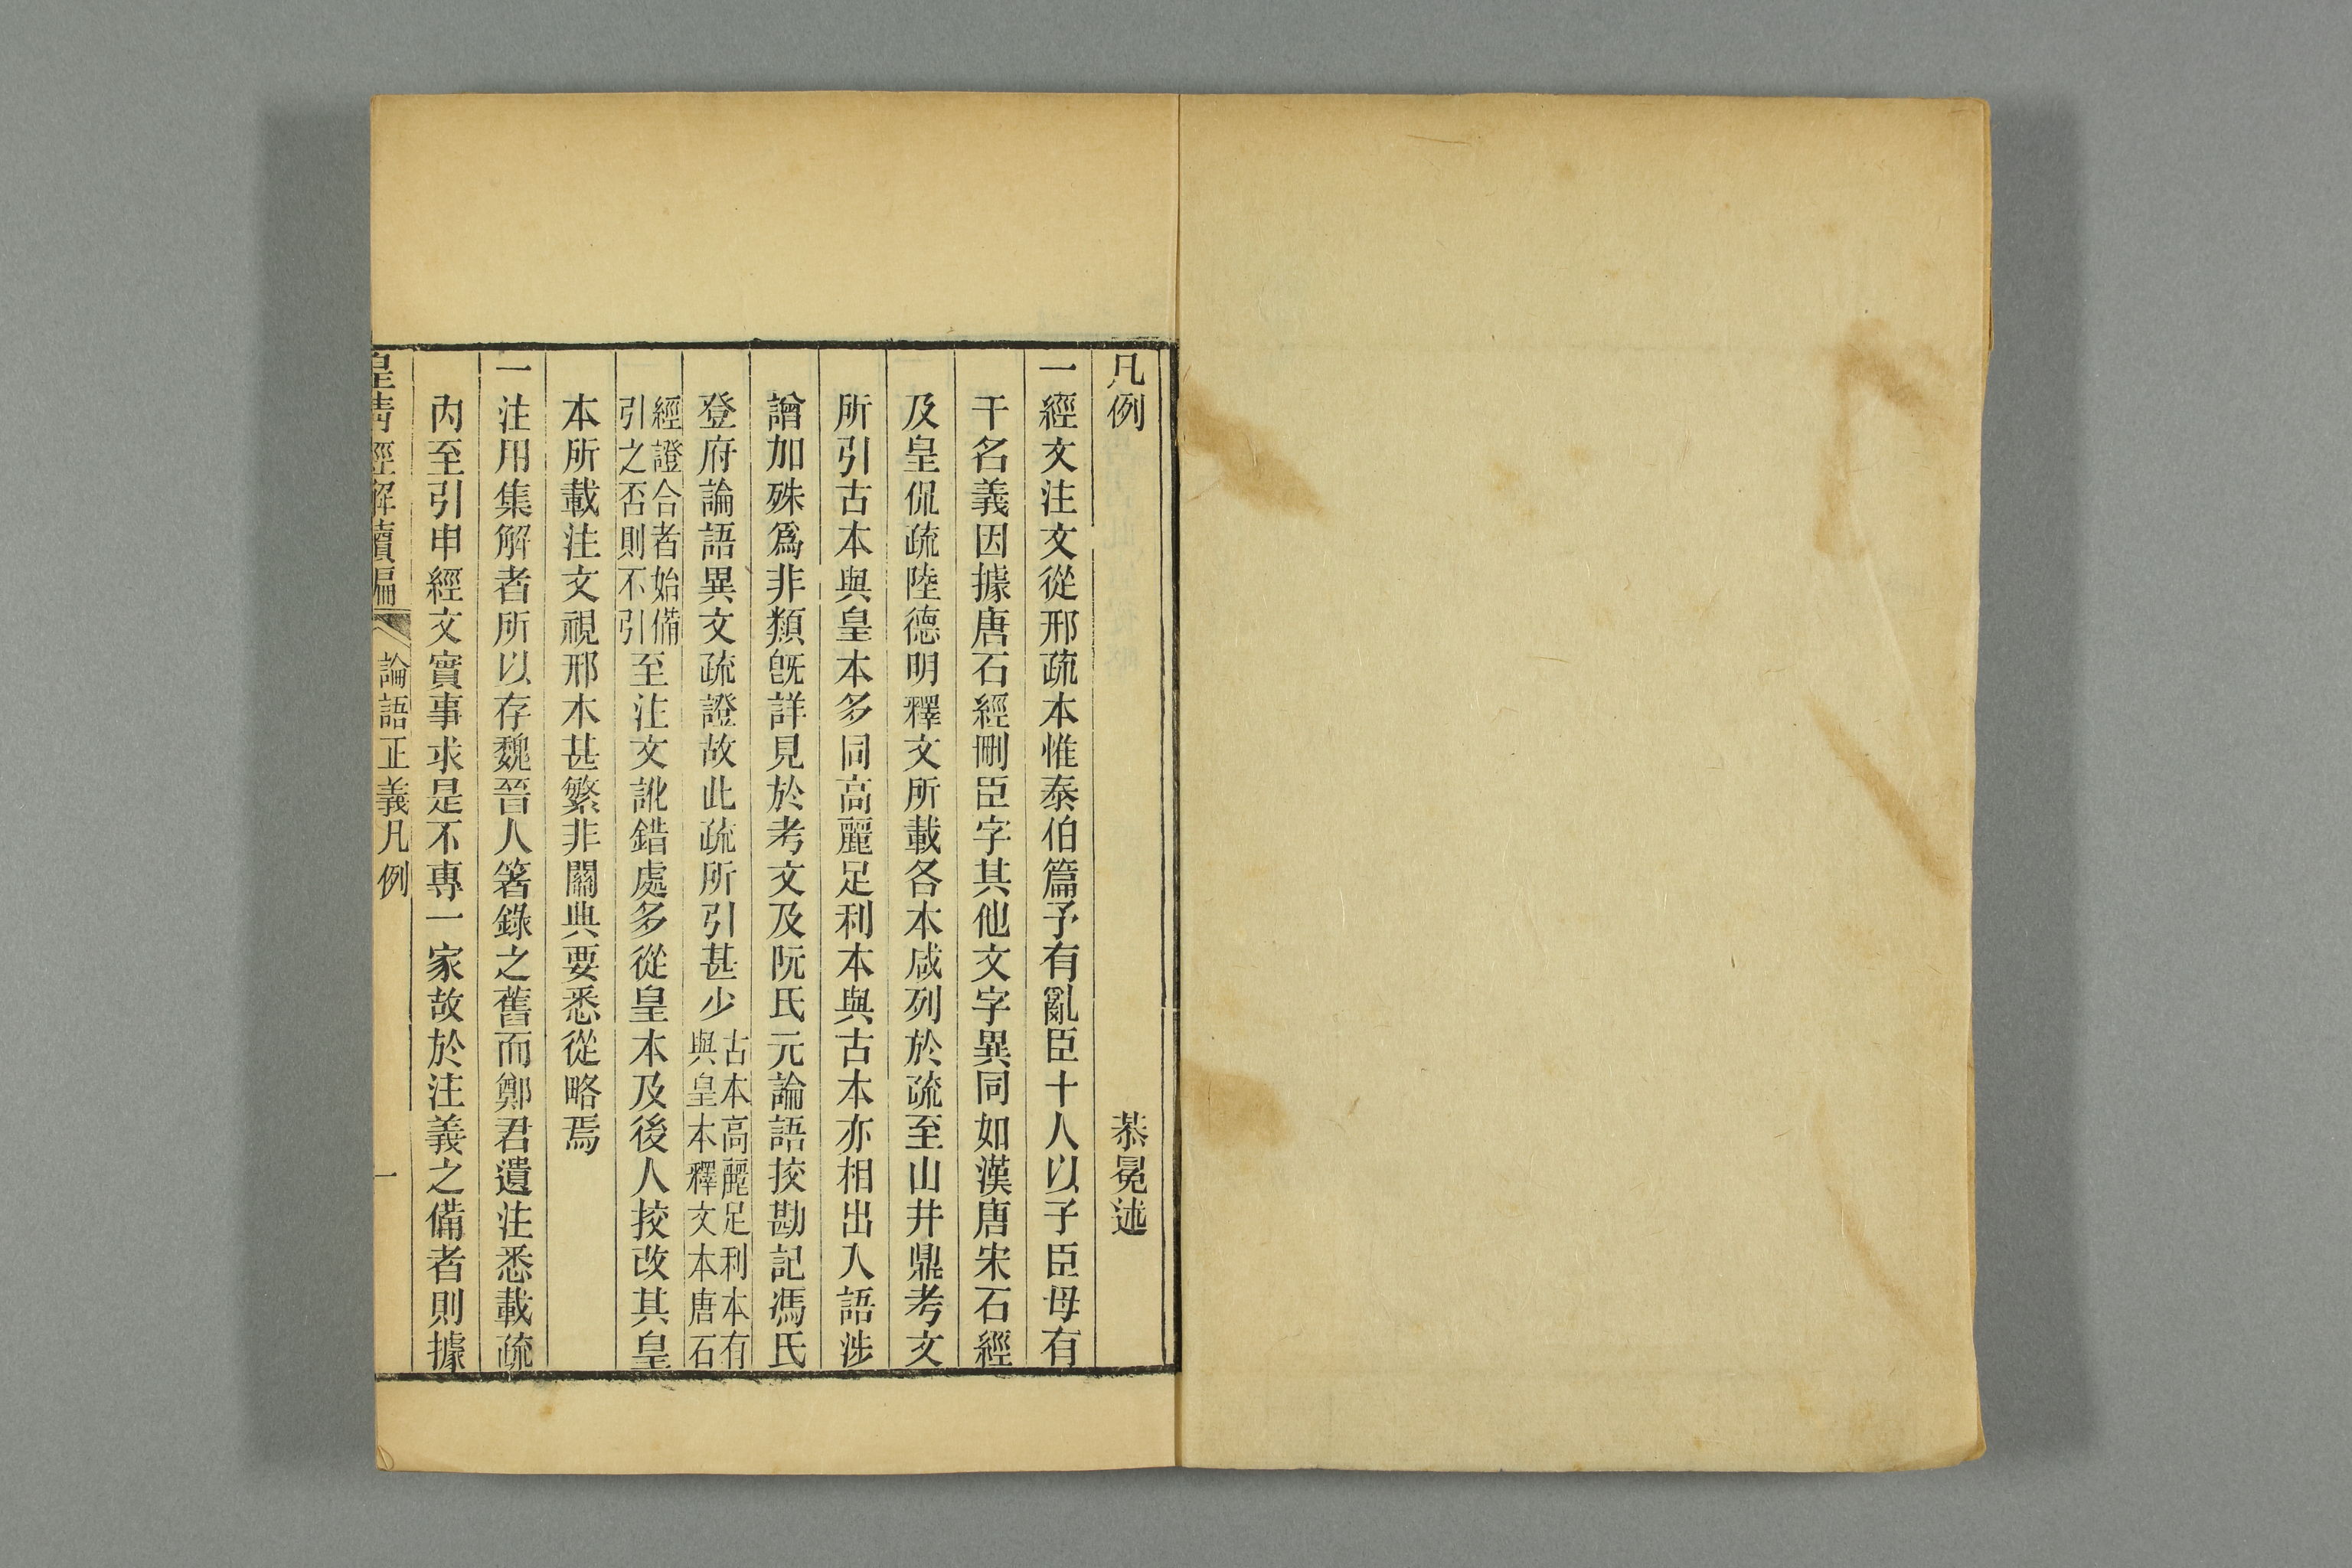 凡例　恭冕述
一經文注文從邢疏本惟泰伯篇予有亂臣十人以子臣母有
干名義因據唐石經刪臣字其他文字異同如漢唐宋石經
及皇侃疏陸德明釋文所載各本咸列於疏至山井鼎考文
所引古本與皇本多同高麗足利本與古本亦相出入語涉
譄加殊爲非類旣詳見於考文及阮氏元論語挍勘記馮氏
登府論語異文疏證故此疏所引甚少古本高麗足利本有
與皇本釋文本唐石
經證合者始備
引之否則不引至注文訛錯處多從皇本及後人挍改其皇
本所載注文視邢本甚繁非關典要悉從略焉
一注用集解者所以存魏晉人箸錄之舊而鄭君遺注悉載疏
內至引申經文實事求是不專一家故於注義之備者則據
皇清經解續編　論語正義凡例　一